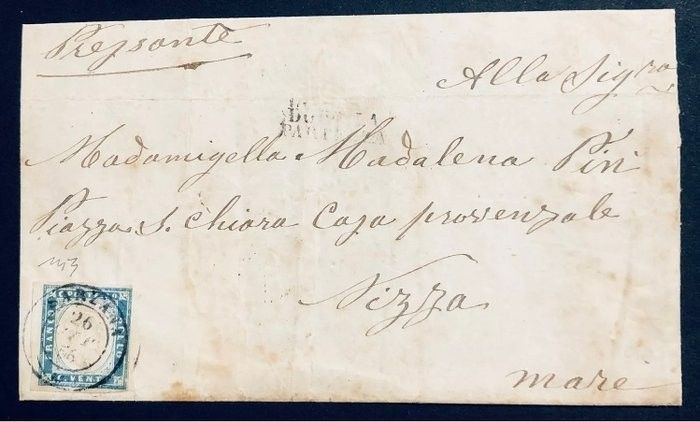 Pressante
Alla Sigra
DOPO LA
PARTENZA
Madamigella Madalena Piri
Piazza S. Chiara Casa provenzale
Nizza
mare
SARZANA
26
FRANCO
BOLLO
C. VENTI